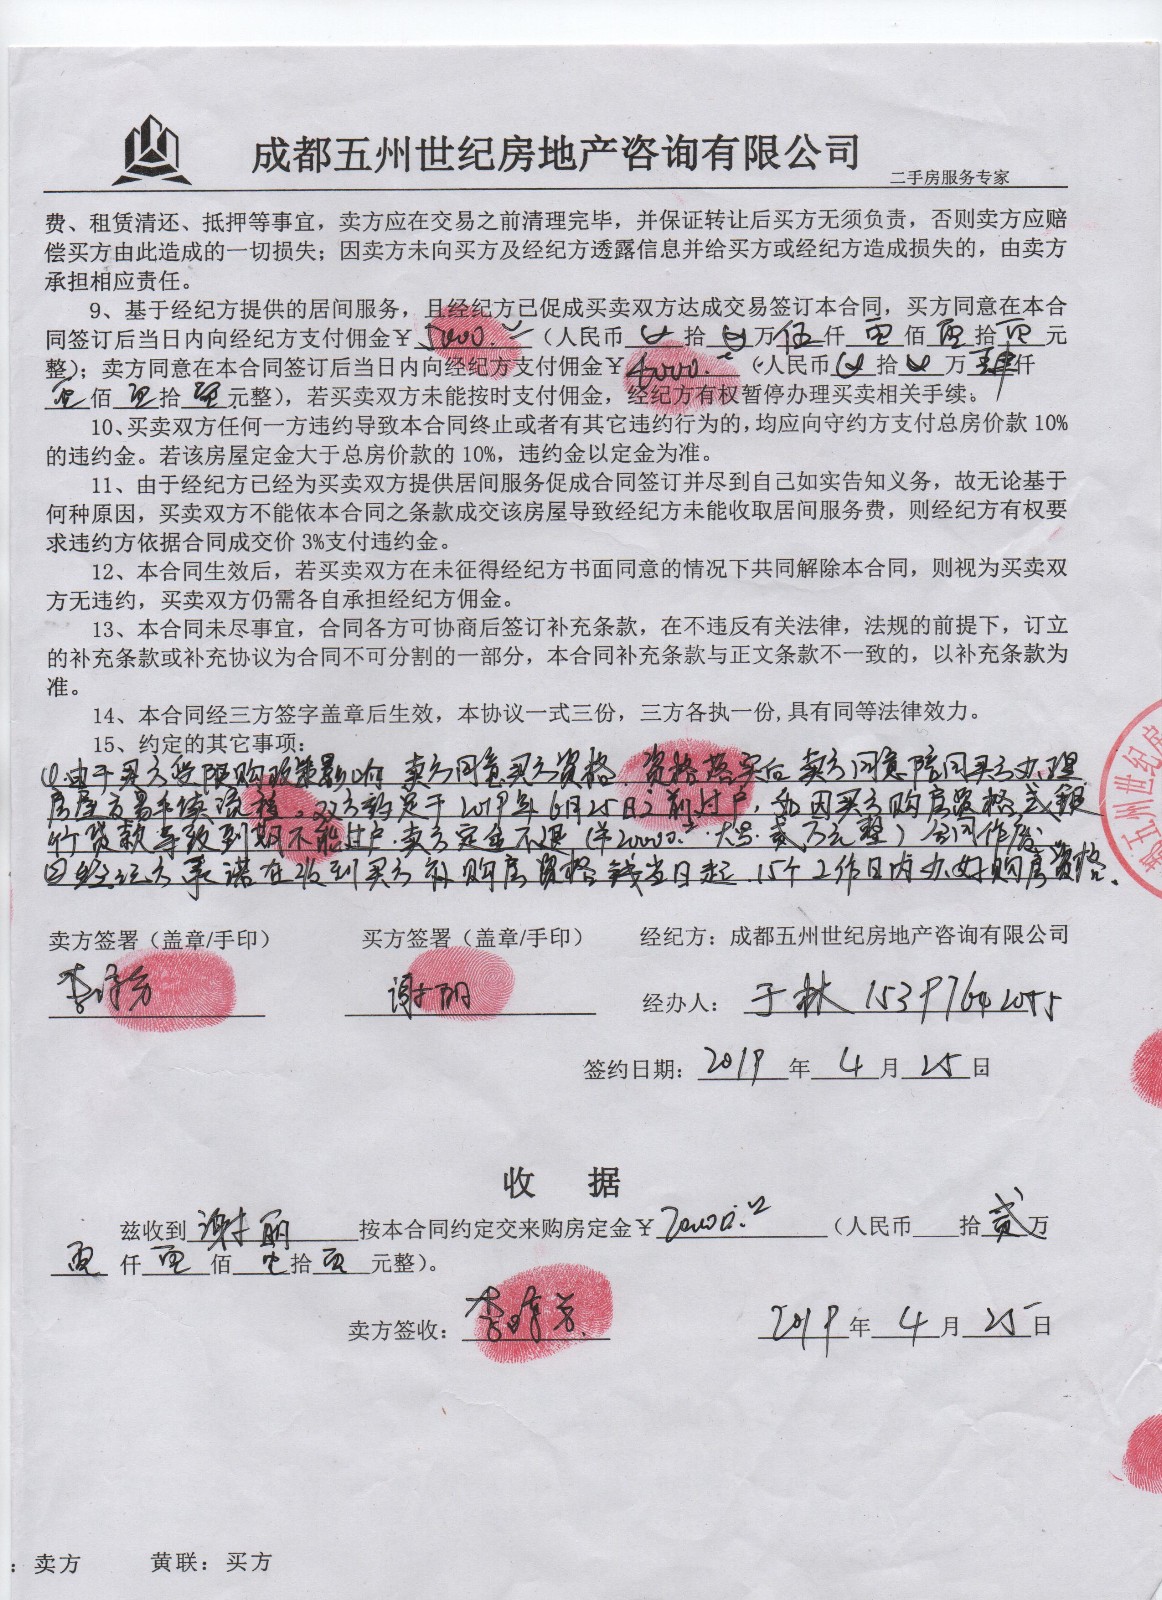 成都五州世纪房地产咨询有限公司
二手房服务专家
费、租赁清还、抵押等事宜，卖方应在交易之前清理完毕，并保证转让后买方无须负责，否则卖方应赔
偿买方由此造成的一切损失；因卖方未向买方及经纪方透露信息并给买方或经纪方造成损失的，由卖方
承担相应责任。
9、基于经纪方提供的居间服务，且经纪方已促成买卖双方达成交易签订本合同，买方同意在本合
同签订后当日内向经纪方支付佣金￥5000.（人民币 拾 万伍仟零佰零拾零元
整）；卖方同意在本合同签订后当日内向经纪方支付佣金￥4000.（人民币 拾 万肆仟
零佰零拾零元整），若买卖双方未能按时支付佣金，经纪方有权暂停办理买卖相关手续。
10、买卖双方任何一方违约导致本合同终止或者有其它违约行为的，均应向守约方支付总房价款10%
的违约金。若该房屋定金大于总房价款的10%，违约金以定金为准。
11、由于经纪方已经为买卖双方提供居间服务促成合同签订并尽到自己如实告知义务，故无论基于
何种原因，买卖双方不能依本合同之条款成交该房屋导致经纪方未能收取居间服务费，则经纪方有权要
求违约方依据合同成交价3%支付违约金。
12、本合同生效后，若买卖双方在未征得经纪方书面同意的情况下共同解除本合同，则视为买卖双
方无违约，买卖双方仍需各自承担经纪方佣金。
13、本合同未尽事宜，合同各方可协商后签订补充条款，在不违反有关法律，法规的前提下，订立
的补充条款或补充协议为合同不可分割的一部分，本合同补充条款与正文条款不一致的，以补充条款为
准。
14、本合同经三方签字盖章后生效，本协议一式三份，三方各执一份,具有同等法律效力。
15、约定的其它事项：
①由于买方受限购政策影响 卖方同意买方资格 资格落实后 卖方同意陪同买方办理
房屋交易手续流程，双方约定于2019年6月25日之前过户，如因买方购房资格或银
行贷款导致到期不能过户.卖方定金不退（￥20000. 大写：贰万元整）合同作废
②经纪方承诺在收到买方办购房资格钱当日起.15个工作日内办好购房资格.
卖方签署（盖章/手印） 买方签署（盖章/手印） 经纪方：成都五州世纪房地产咨询有限公司
经办人：于林
签约日期：2019年4月25日
收 据
兹收到谢丽按本合同约定交来购房定金￥20000.（人民币 拾贰万
零仟零佰零拾零元整）。
卖方签收： 2019年4月25日
：卖方 黄联：买方
都五州世纪房